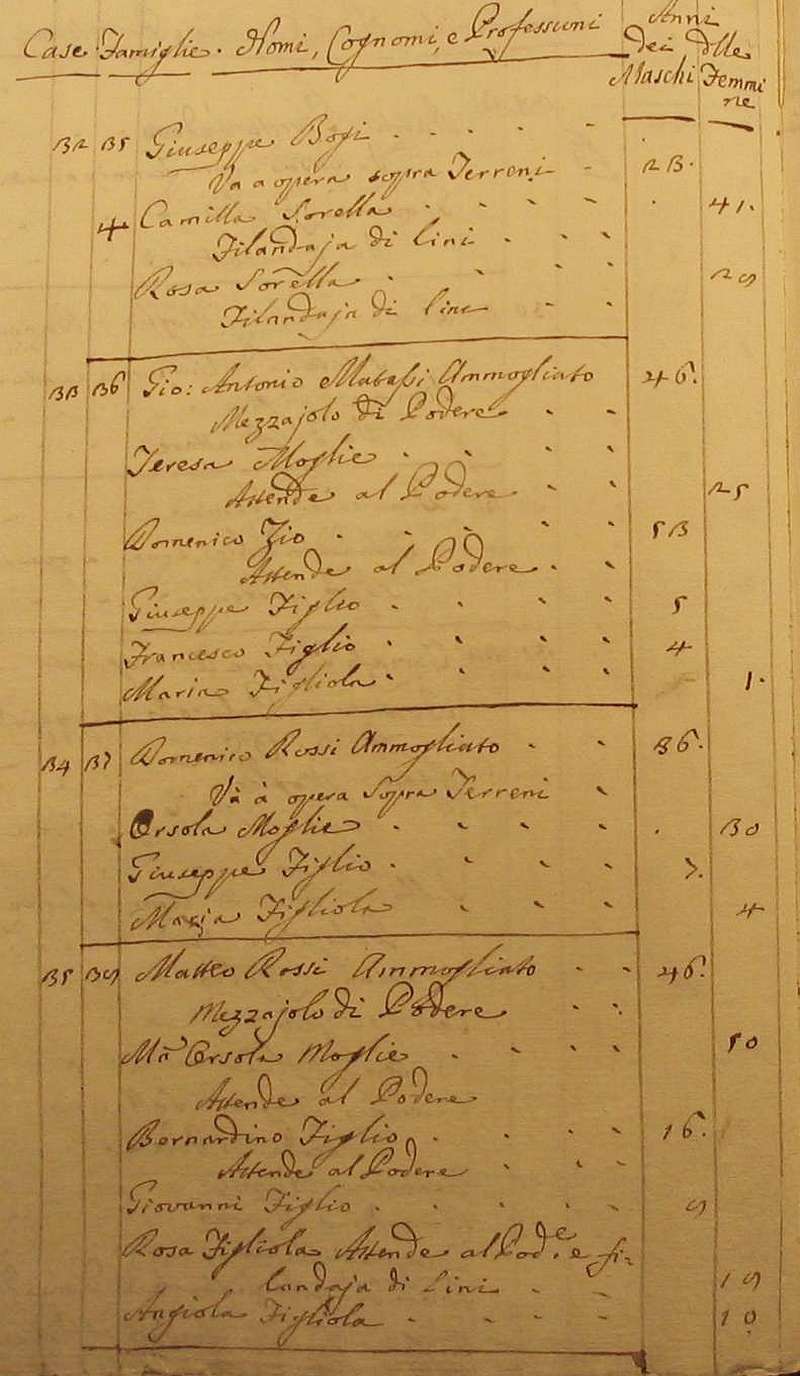 Case. Famiglie. Nomi, Cognomi, e Professioni Anni
dei delle
Maschi Femmi
ne
32 35 Giuseppe Bosi
Va a opera sopra Terreni 23.
4 Camilla Sorella 41.
Filandaja di lini
Rosa Sorella 29
Filandaja di lini
33 36 Gio: Antonio Matassi Ammogliato 46.
Mezzajolo di Podere
Teresa Moglie
Attende al Podere 25
Domenico Zio 53
Attende al Podere
Giuseppe Figlio 5
Francesco Figlio 4
Maria Figliola 1.
34 37 Domenico Rossi Ammogliato 36.
Và à opera Sopra Terreni
Orsola Moglie 30
Giuseppe Figlio 7.
Maria Figliola 4
35 39 Matteo Rossi Ammogliato 46.
Mezzajolo di Podere
Ma Orsola Moglie 50
Attende al Podere
Bernardino Figlio 16.
Attende al Podere
Giovanni Figlio 9
Rosa Figliola Attende al Pod.e e fi-
landaja di lini 19
Angiola Figliola 10